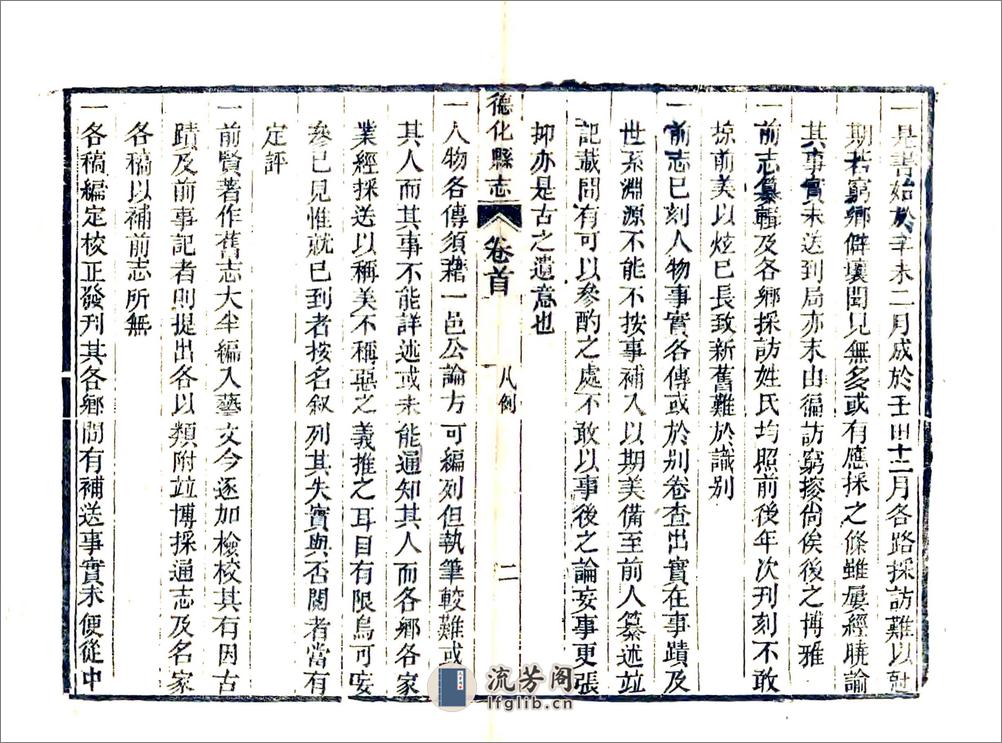 一是書始於辛未二月成於壬申十二月各路採訪難以尅
期若窮鄉僻壤聞見無多或有應採之條雖屢經曉諭
其事實未送到局亦未由徧訪窮搜尚俟後之博雅
一前志纂輯及各鄉採訪姓氏均照前後年次刊刻不敢
掠前美以炫已長致新舊難於識別
一前志已刻人物事實各傳或於别卷查出實在事蹟及
世系淵源不能不按事補入以期美備至前人纂述竝
記載間有可以參酌之處不敢以事後之論妄事更張
抑亦是古之遺意也
德化縣志
卷首
凡例
二
一人物各傳須藉一邑公論方可編列但執筆較難或
其人而其事不能詳述或未能通知其人而各鄉各家
業經採送以稱美不稱惡之義推之耳目有限烏可妄
參已見惟就已到者按名叙列其失實與否閱者當有
定評
一前賢著作舊志大半編入藝文今逐加檢校其有因古
蹟及前事記者則提出各以類附竝博採通志及名家
各稿以補前志所無
一各稿編定校正發刊其各鄉間有補送事實未便從中
流芳阁
lfglib.cn